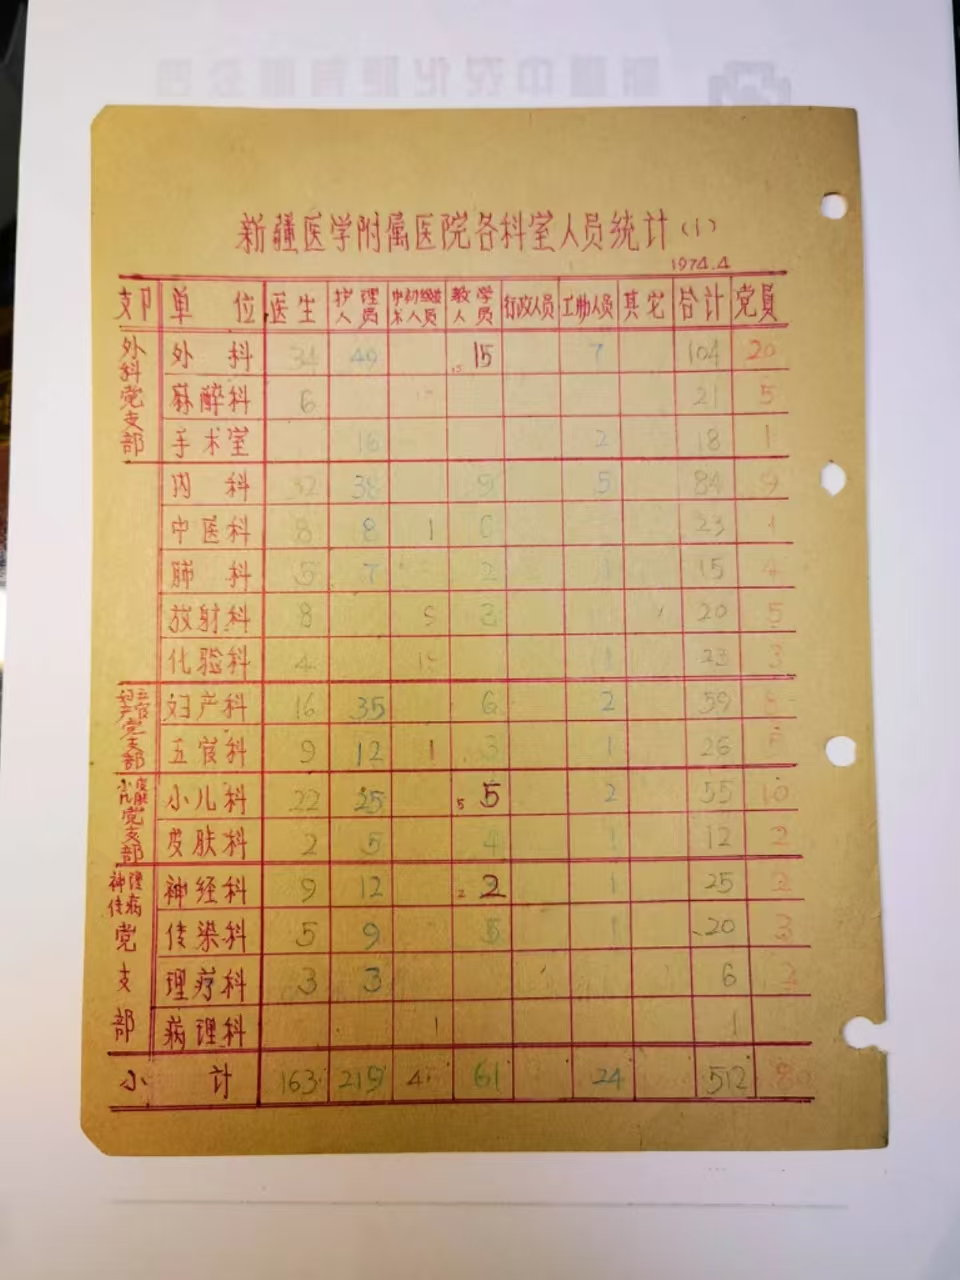 新疆医学附属医院各科室人员统计（1）
1974.4
支卩 单位 医生 护理人员 中初级技术人员 教学人员 行政人员 工勤人员 其它 合计 党员
外科党支部
外科 34 49 15 15 7 104 20
麻醉科 6 21 5
手术室 16 2 18 1
内科 32 38 9 5 84 9
中医科 8 8 1 6 23
肺科 5 7 2 1 15 4
放射科 8 9 3 20 5
化验科 4 1 23 3
妇产五官党支部
妇产科 16 35 6 2 59
五官科 9 12 1 3 1 26
小儿皮肤党支部
小儿科 22 25 5 5 2 55 10
皮肤科 2 5 4 1 12 2
神理传病党支部
神经科 9 12 2 2 1 25 2
传染科 5 9 5 1 20 3
理疗科 3 3 6 2
病理科 1 1
小计 163 219 61 24 512 80